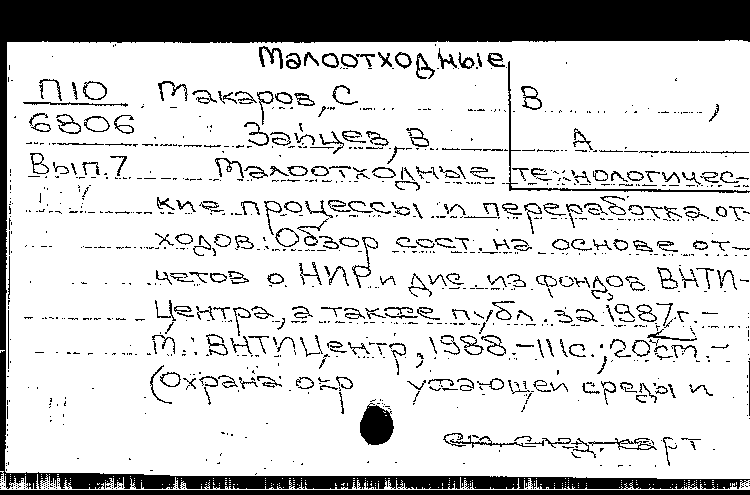 Малоотходные
П10 Макаров, С В ,
6806 Зайцев, В А
Вып.7 Малоотходные технологичес-
кие процессы и переработка от-
ходов: Обзор сост. на основе от-
четов о НИР и дис. из фондов ВНТИ-
Центра, а также публ. за 1987г.-
М.: ВНТИЦентр, 1988.-111с.; 20см.-
(Охрана окр ужающей среды и
см. след. карт.